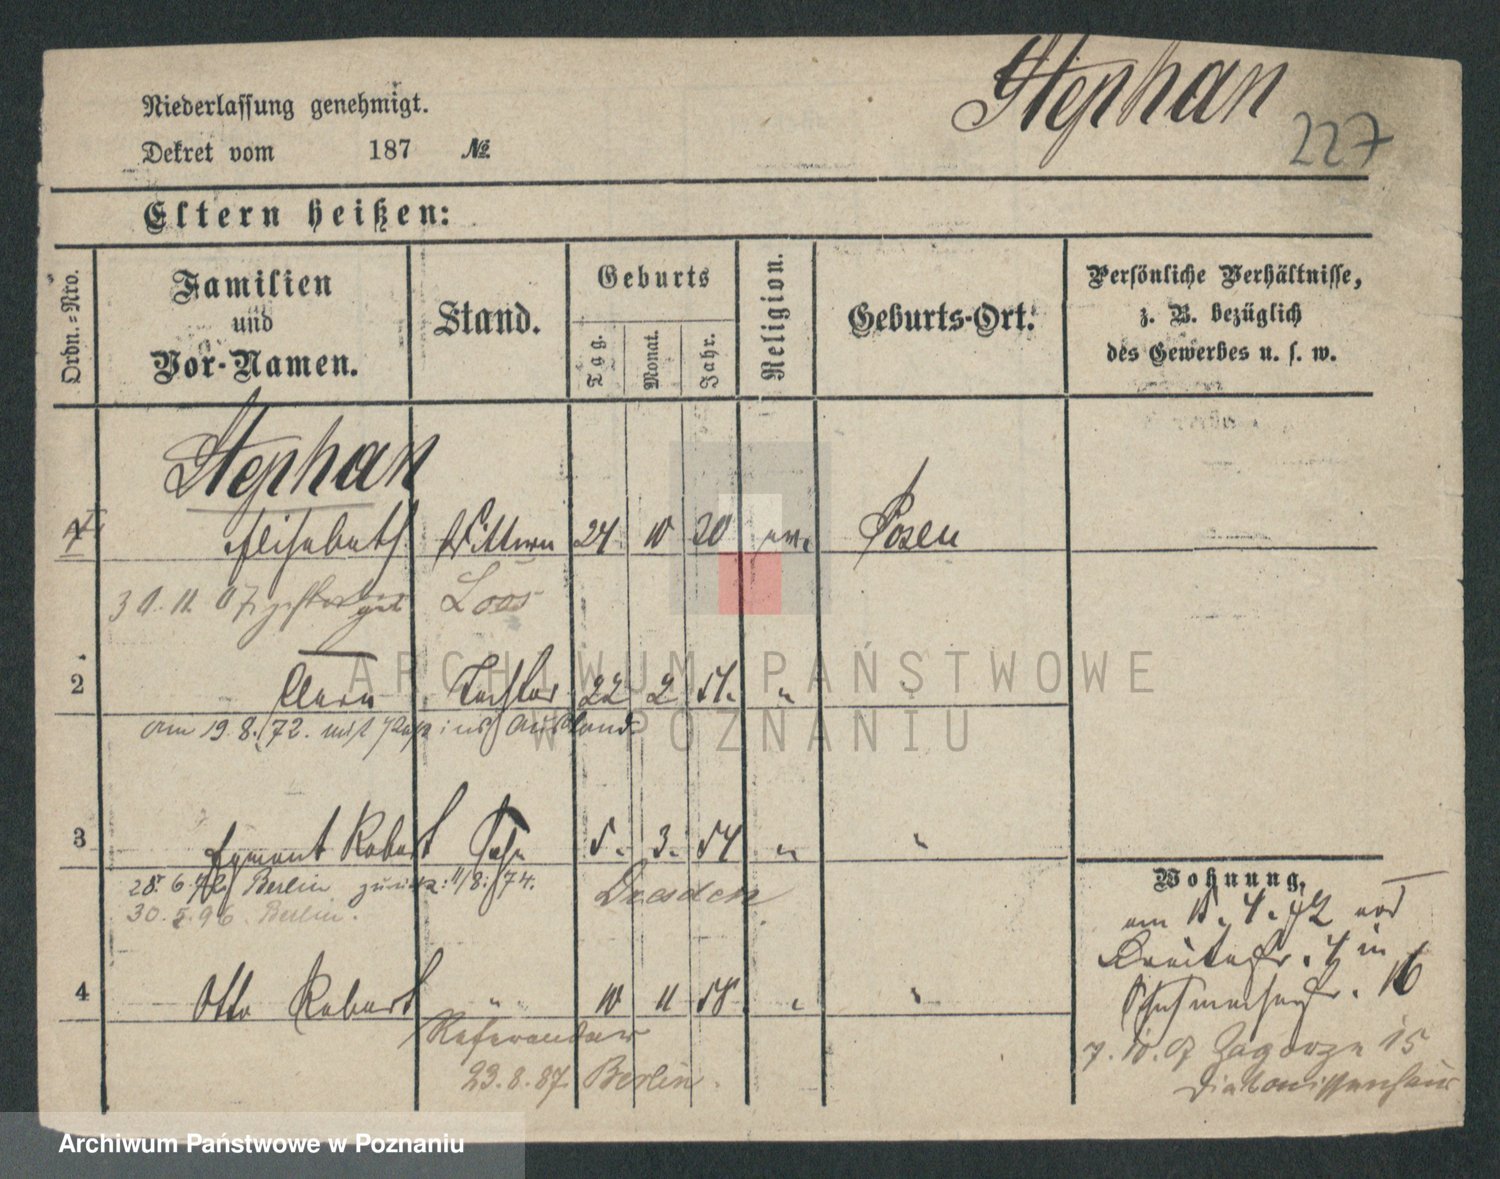 Stephan
227
Niederlassung genehmigt.
Dekret vom 187 №
Eltern heißen:
Ordn.=Nro.
Familien und Vor-Namen.
Stand.
Geburts
Tag.
Monat.
Jahr.
Religion.
Geburts-Ort.
Persönliche Verhältnisse,
z. B. bezüglich
des Gewerbes u. s. w.
Stephan
1 Elisabeth Wittwe 24 10 20 ev. Posen
30. 11. 07 gestorben Loos
2 Clara Tochter 22 2 51. "
am 19. 8. 72. mit Paß ins Ausland
3 Egmont Robert Sohn 5. 3. 54 " "
28. 6. 72 Berlin zurück: 11/8. 74. Dresden
30. 5. 96 Berlin.
4 Otto Robert " 10 11 58 " "
Referendar
23. 8. 87 Berlin.
Wohnung.
am 15. 4. 72 von
Breitestr. 4 in
Schuhmacherstr. 16
7. 10. 07 Zagorze 15
Diakonissenhaus
ARCHIWUM PAŃSTWOWE
W POZNANIU
Archiwum Państwowe w Poznaniu